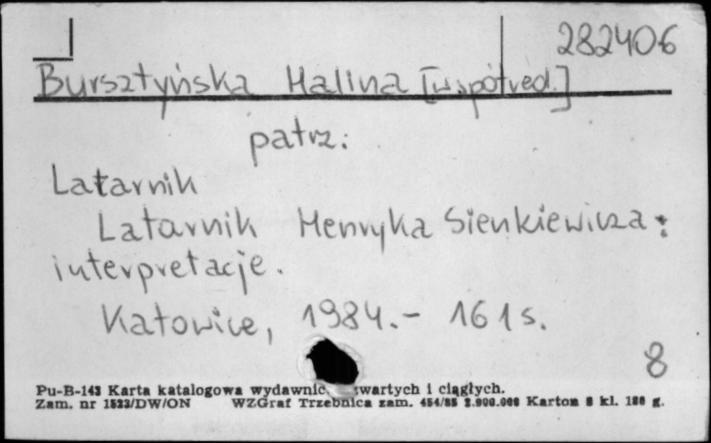 282406
Bursztyńska Halina [współred.]
patrz:
Latarnik
Latarnik Henryka Sienkiewicza:
interpretacje.
Katowice, 1984.- 161 s.
8
Pu-B-143 Karta katalogowa wydawnic zwartych i ciągłych.
Zam. nr 1523/DW/ON WZGraf Trzebnica zam. 454/85 2.900.000 Karton 8 kl. 180 g.